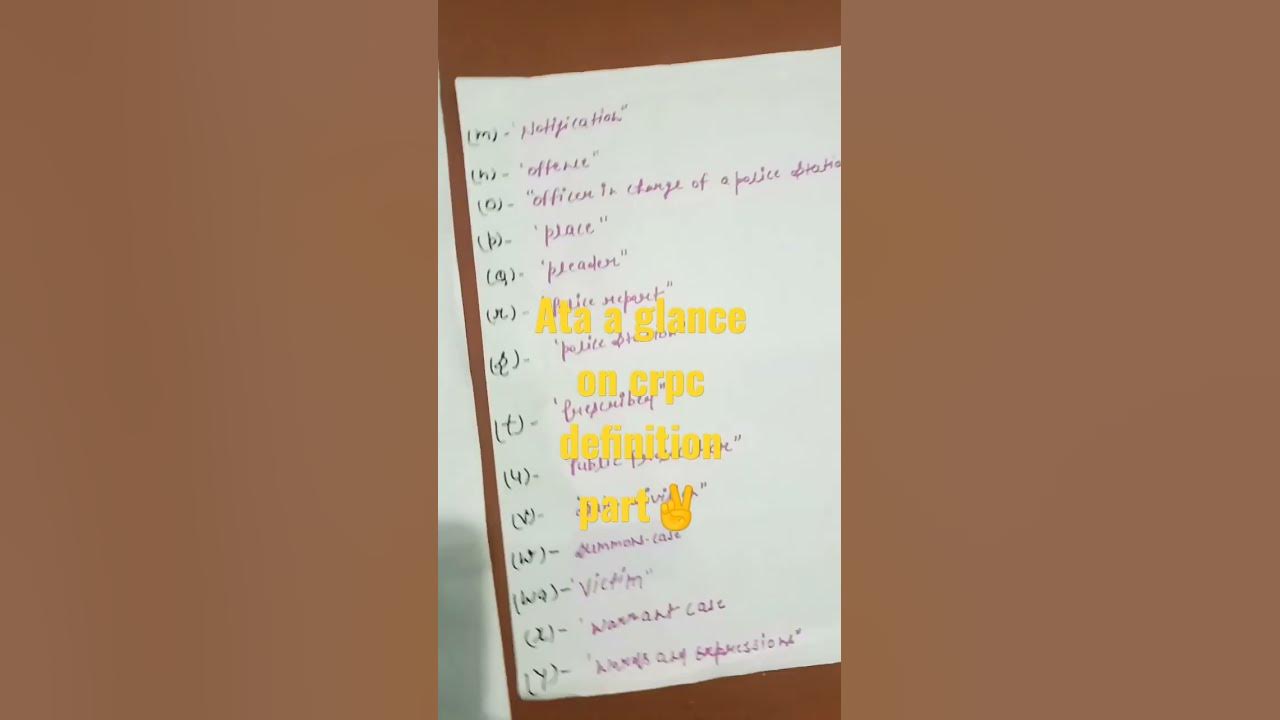 (m)- 'Notification"
(n)- 'offence"
(o)- "officer in charge of a police statio
(p)- 'place"
(q)- 'pleader"
(r)- 'police report"
(s)- 'police station"
(t)- 'Prescribed"
(u)- Public Prosecutor"
(v)- 'Sub-division"
(w)- summons-case
(wa)- 'Victim"
(x)- 'warrant case
(y)- 'words and expressions"
Ata a glance
on crpc
definition
part✌